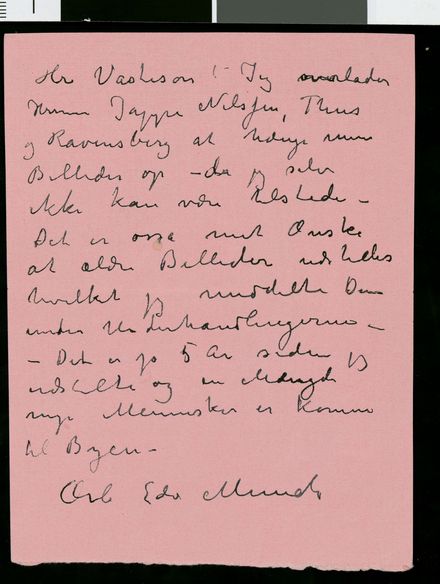 Hr Vadheson! Jeg overlader
Herrene Jappe Nilssen, Thiis
og Ravensberg at hænge mine
Billeder op – da jeg selv
ikke kan være tilstede –
Det er også mit Ønske
at ældre Billeder udstilles
hvilket jeg meddelte Dem
under Underhandlingerne –
– Det er jo 5 År siden jeg
udstillte og en Mængde
nye Mennesker er komne
til Byen –
Edv Munch